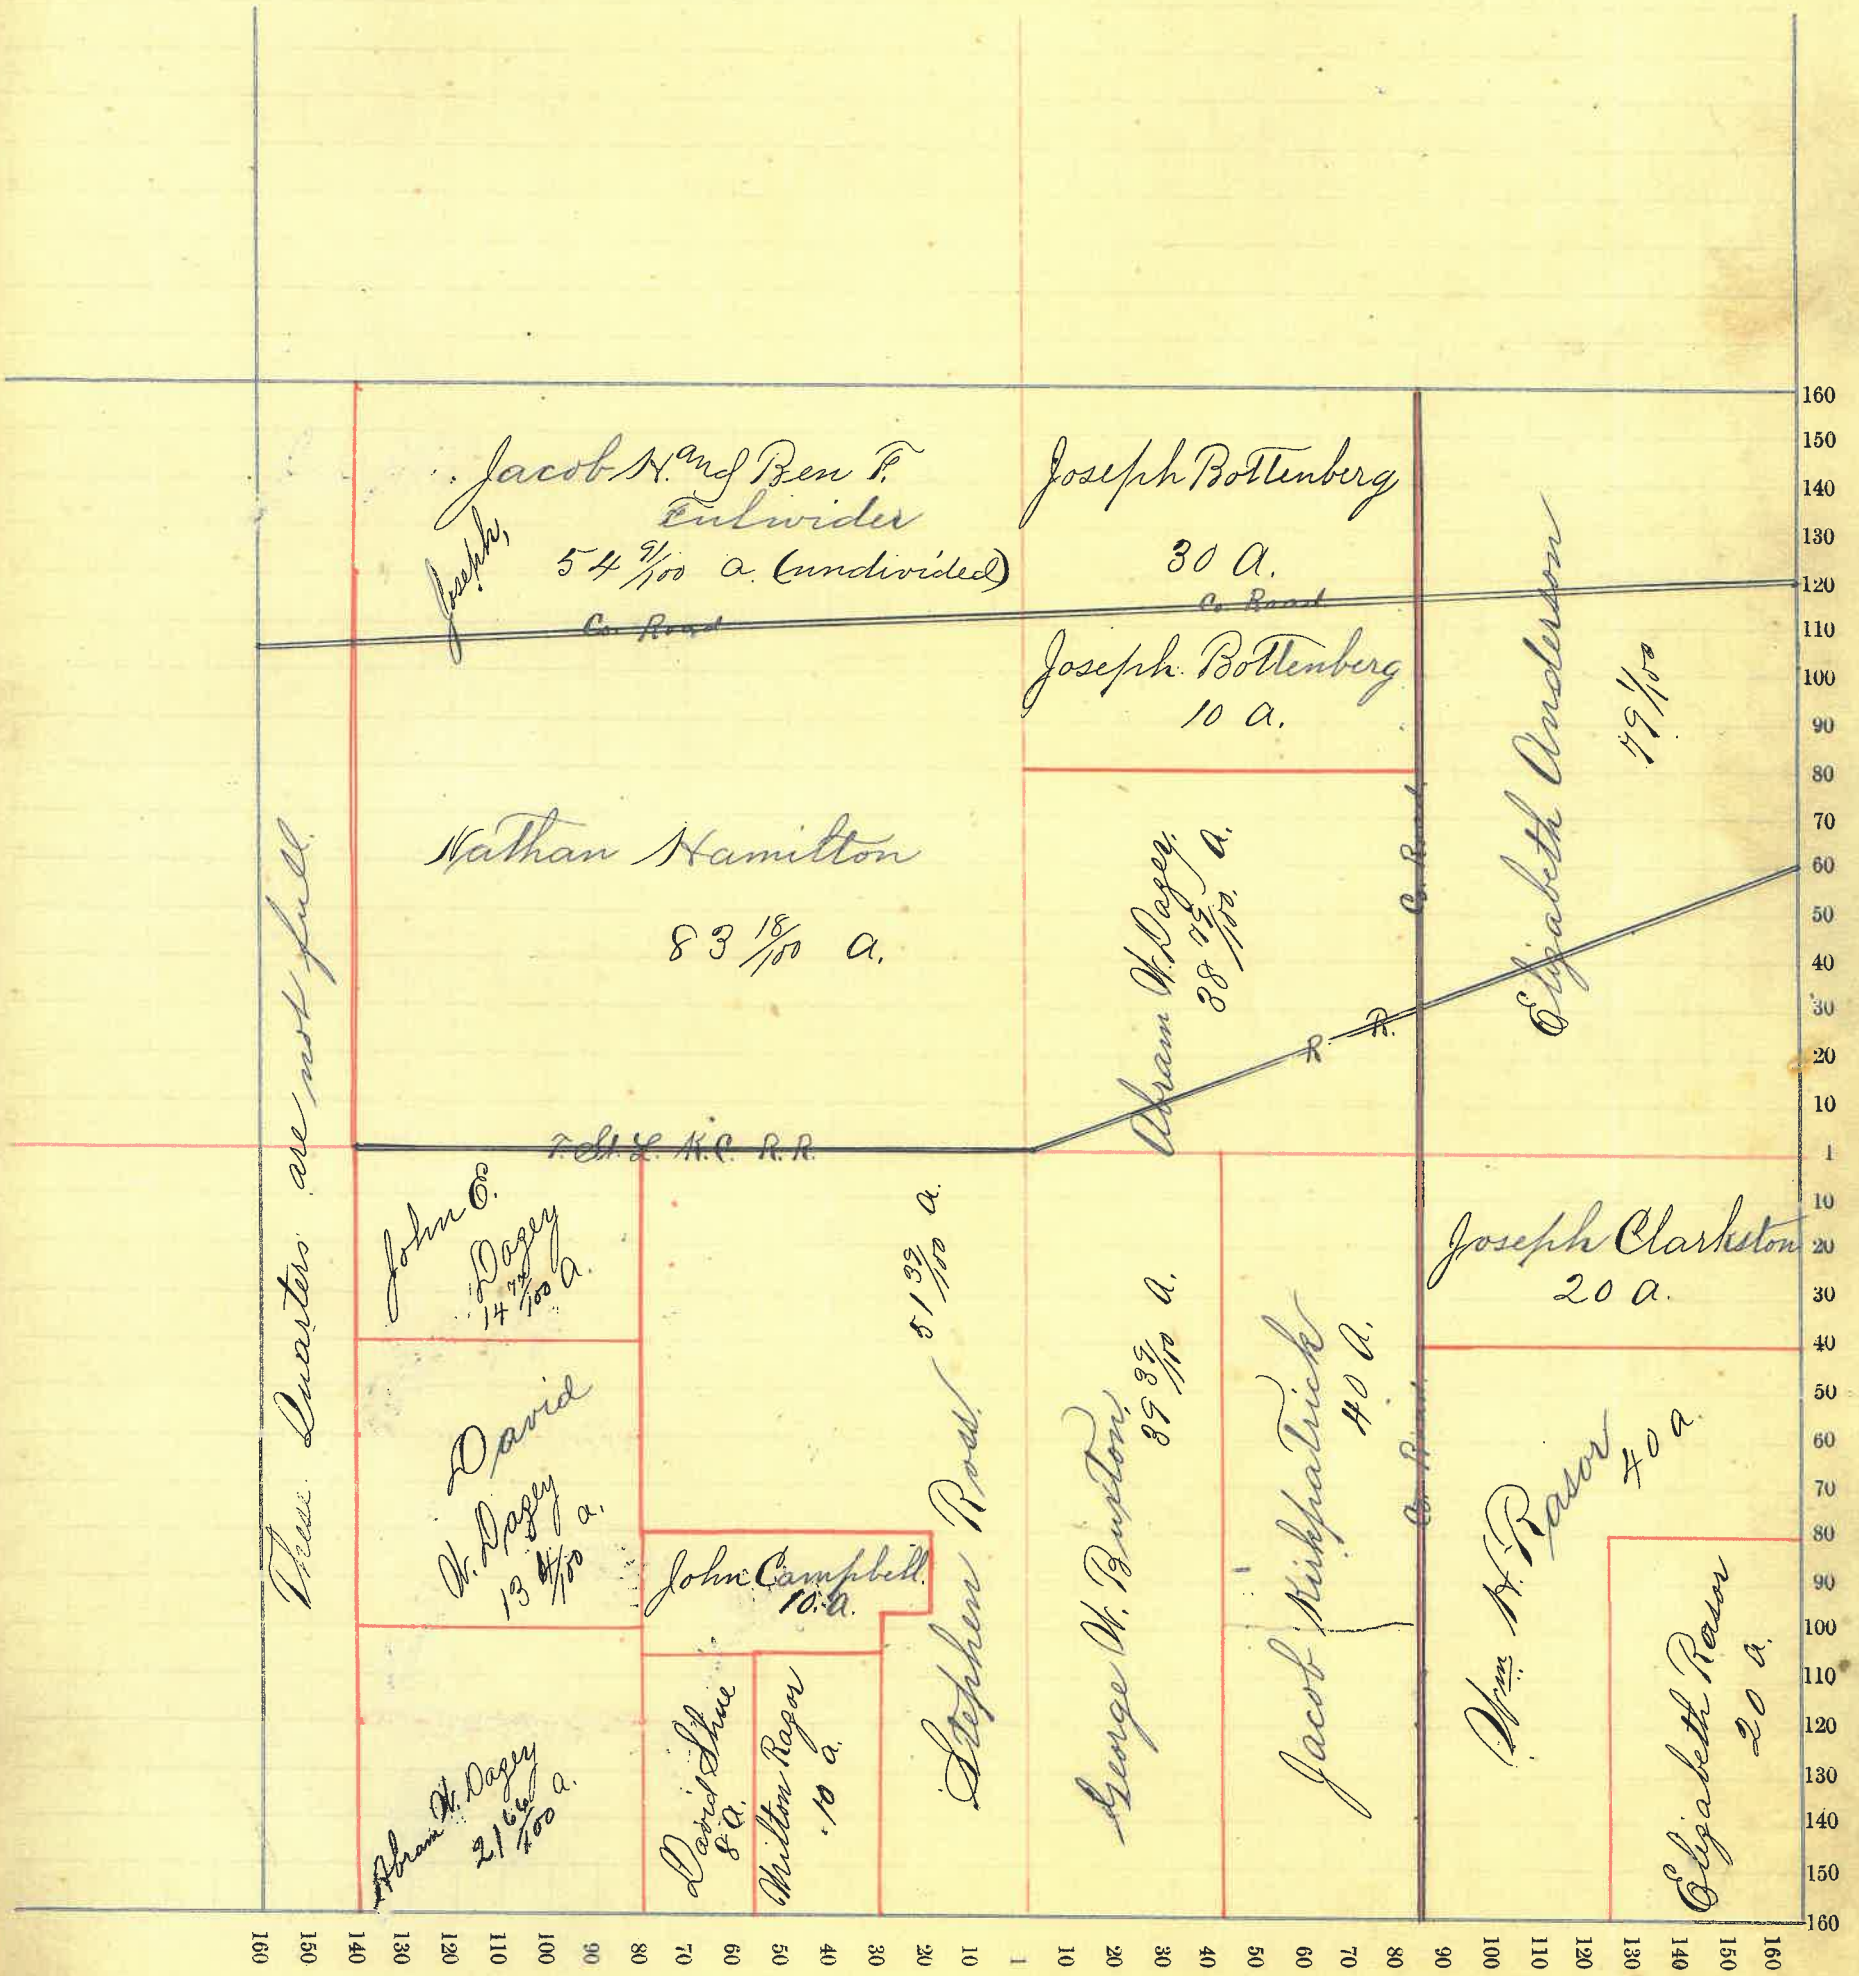 Jacob H. and Ben F.
Joseph,
Fulwider
54 91/100 a. (undivided)
Co. Road
Joseph Bottenberg
30 A.
Co Road
Joseph Bottenberg
10 A.
Elizabeth Anderson
79 1/100
Nathan Hamilton
83 18/100 A.
Abram W. Dazey.
38 79/100 A.
Co. Road
R. R.
T. St. L. K.C. R.R.
These Quarters are not full.
John C.
Dazey
14 72/100 A.
David
W. Dazey
13 4/100 a.
Abram W. Dazey
21 66/100 a.
John Campbell.
10. a.
David Shue
8 a.
Milton Razor
10 a.
Stephen Ross. 51 39/100 a.
George W. Buxton.
39 39/100 A.
Jacob Kirkpatrick
40 A.
Co. Road
Joseph Clarkston
20 A.
Wm H. Rasor
40 a
Elizabeth Rasor
20 a.
160
150
140
130
120
110
100
90
80
70
60
50
40
30
20
10
1
10
20
30
40
50
60
70
80
90
100
110
120
130
140
150
160
160 150 140 130 120 110 100 90 80 70 60 50 40 30 20 10 1 10 20 30 40 50 60 70 80 90 100 110 120 130 140 150 160